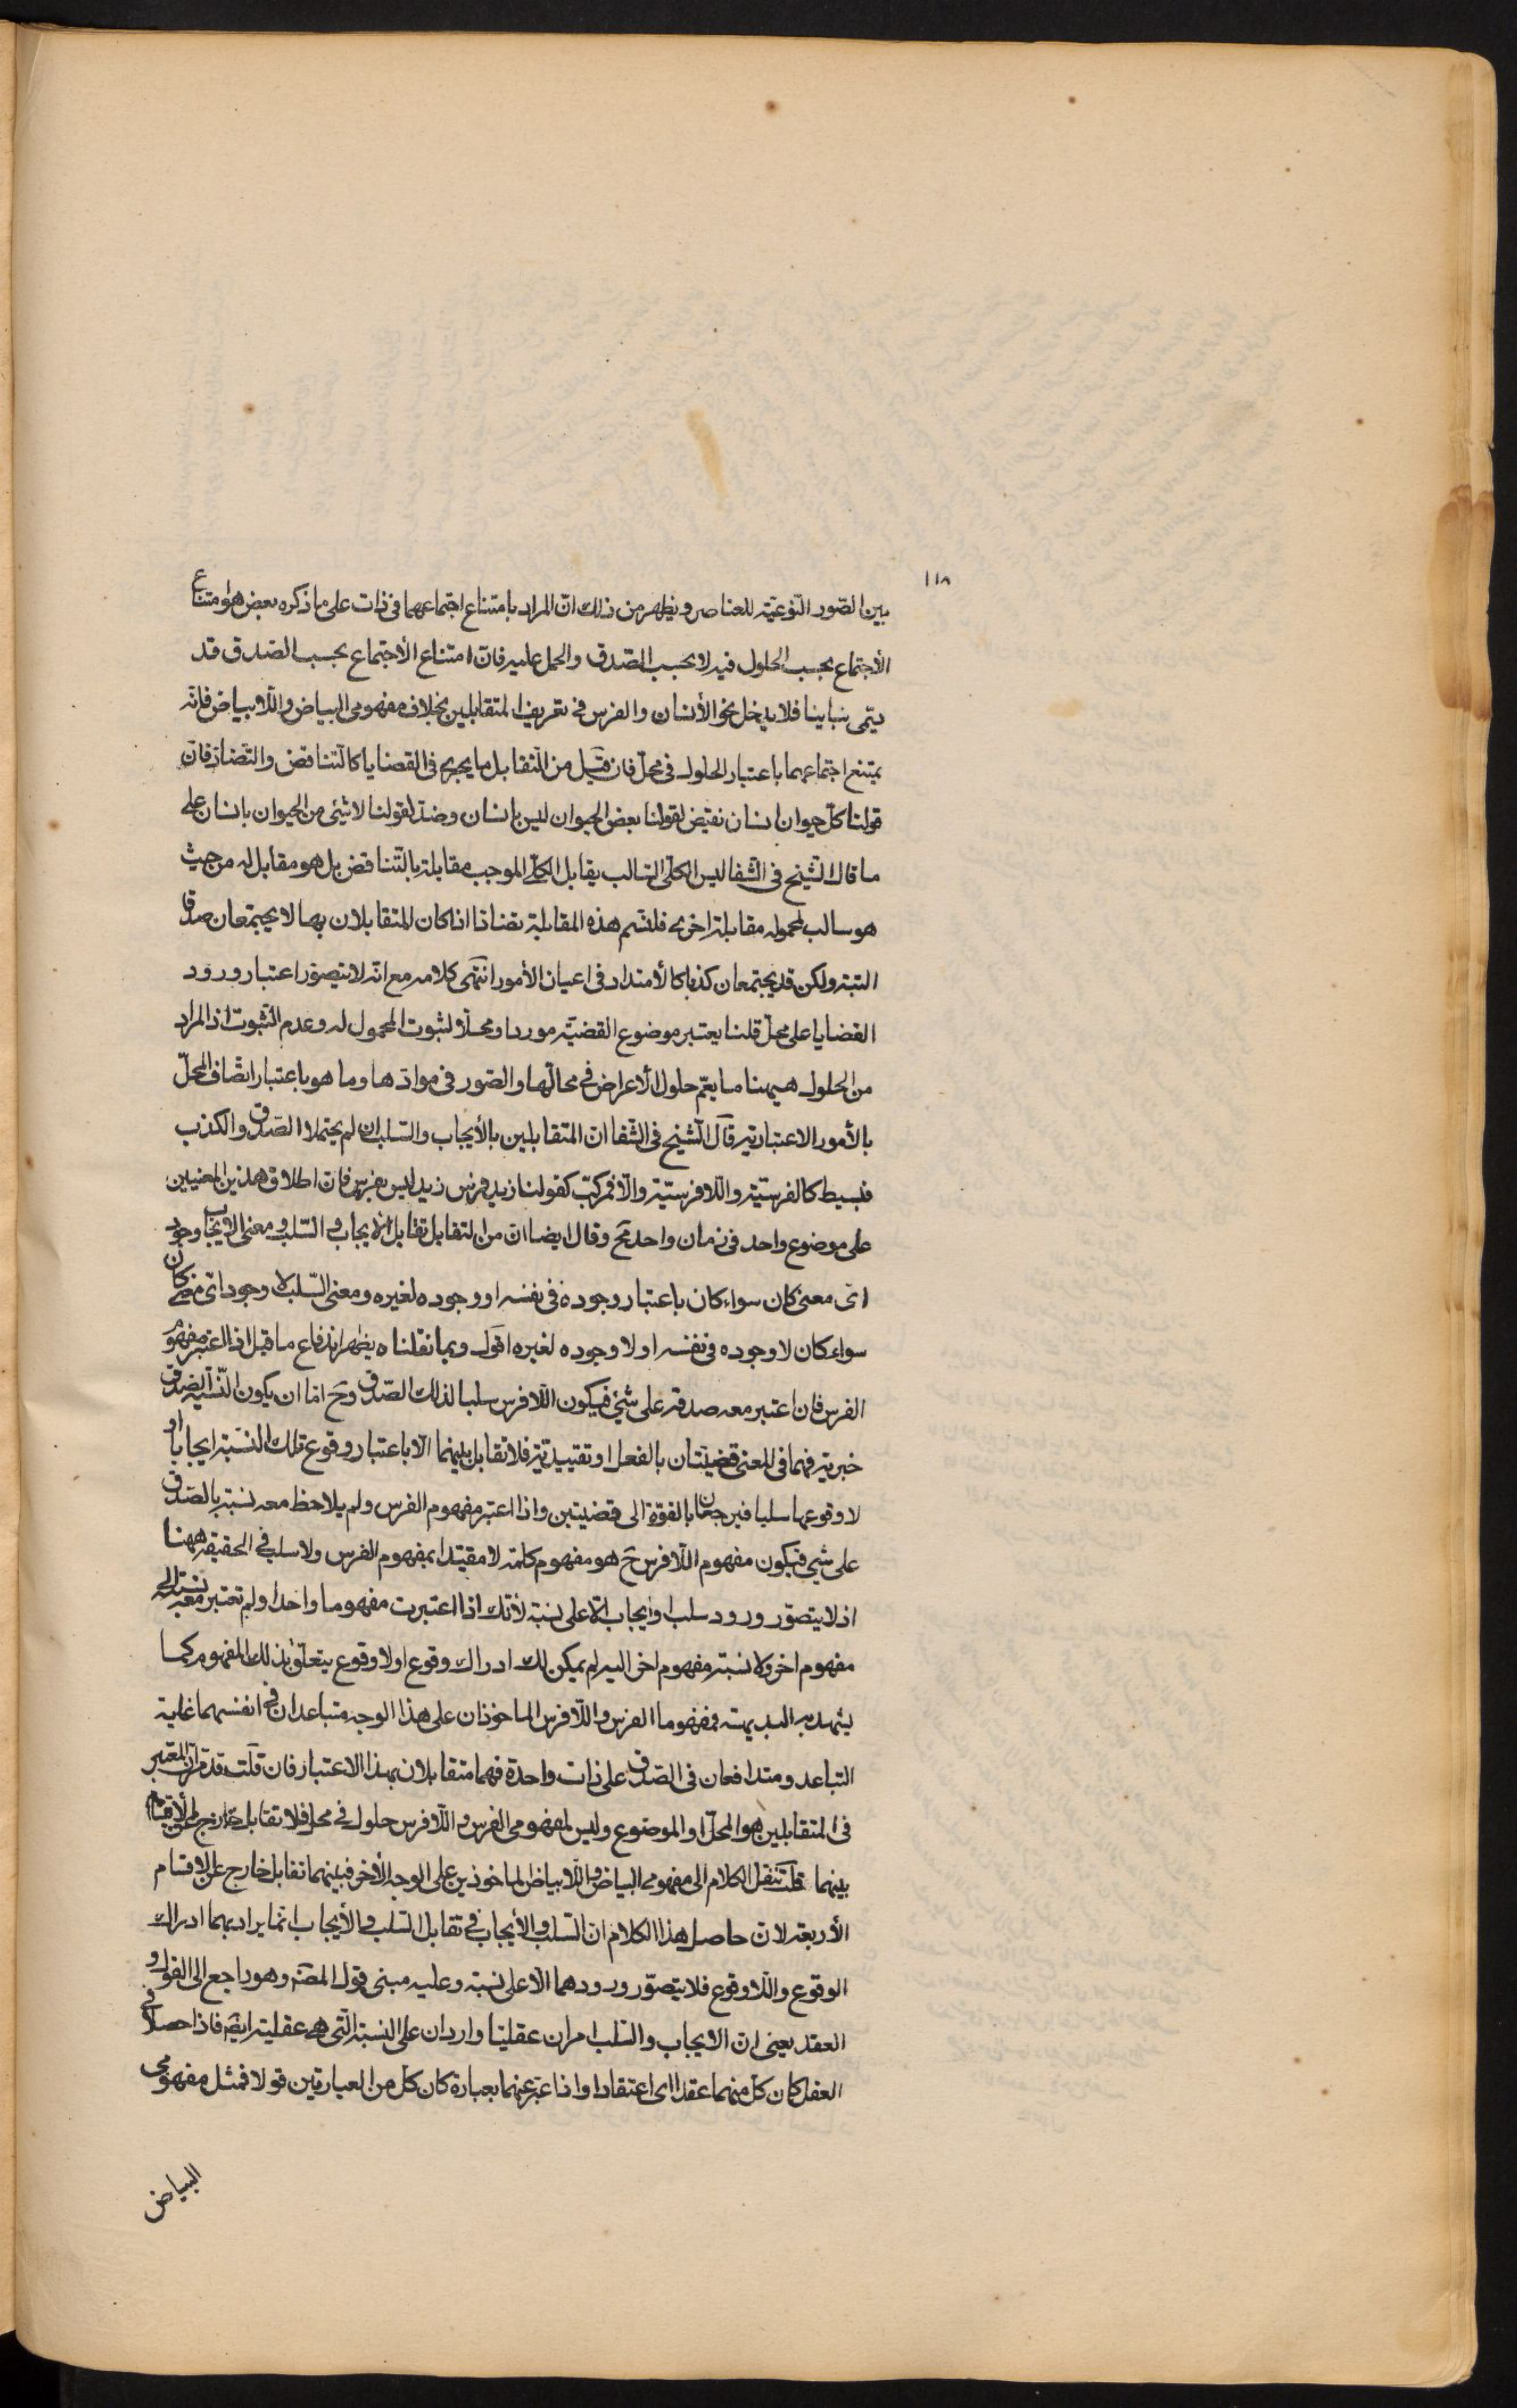 ١١٨
بين الصّور النّوعيّة للعناصر ويظهر من ذلك انّ المراد بامتناع اجتماعهما فى ذات على ما ذكره بعض هو امتناع
الأجتماع بحسب الحلول فيه لا بحسب الصّدق والحمل عليه فانّ امتناع الأجتماع بحسب الصّدق قد
يسمّى تباينا فلا يدخل نحو الأنسان والفرس فى تعريف المتقابلين بخلاف مفهومى البياض واللّا بياض فانّه
يمتنع اجتماعهما باعتبار الحلول فى محلّ فان قيل من التّقابل ما يجرى فى القضايا كالتّناقض والتّضادّ فانّ
قولنا كلّ حيوان انسان نقيض لقولنا بعض الحيوان ليس بانسان وضدّ لقولنا لا شيئ من الحيوان بانسان على
ما قال الشّيخ فى الشّفا ليس الكلّى السّالب يقابل الكلّى الموجب مقابلة بالتّناقض بل هو مقابل له من حيث
هو سالب لمحموله مقابلة اخرى فلنسم هذه المقابلة تضادّا اذا كان المتقابلان بها لا يجتمعان صدقا
البتة ولكن قد يجتمعان كذبا كالأضداد فى اعيان الأمور انتهى كلامه مع انّه لا يتصوّر اعتبار ورود
القضايا على محلّ قلنا يعتبر موضوع القضيّة موردا ومحلّا لثبوت المحمول له وعدم الثّبوت اذ المراد
من الحلول هيهنا ما يعمّ حلول الأعراض فى محالّها والصّور فى موادّها وما هو باعتبار اتّصاف المحلّ
بالأمور الاعتباريّة قال الشّيخ فى الشّفا انّ المتقابلين بالأيجاب والسّلب ان لم يحتملا الصّدق والكذب
فبسيط كالفرسيّة واللّا فرسيّة والّا فمركّب كقولنا زيد فرس زيد ليس بفرس فانّ اطلاق هذين المعنيين
على موضوع واحد فى زمان واحد مح وقال ايضا انّ من التقابل تقابل الايجاب والسّلب ومعنى الايجاب وجود
اىّ معنى كان سواء كان باعتبار وجوده فى نفسه او وجوده لغيره ومعنى السّلب لا وجود اىّ معنى كان
سواء كان لا وجوده فى نفسه او لا وجوده لغيره اقول وبما نقلناه يظهر اندفاع ما قيل اذا اعتبر مفهوم
الفرس فان اعتبر معه صدقه على شيئ فيكون اللّا فرس سلبا لذلك الصّدق وح امّا ان يكون النّسبة بالصّدق
خبرية فهما فى المعنى قضيّتان بالفعل او تقييديّة فلا تقابل بينهما الّا باعتبار وقوع تلك النّسبة ايجابا او
لا وقوعها سلبا فيرجعان بالقوّة الى قضيتين واذا اعتبر مفهوم الفرس ولم يلاحظ معه نسبة بالصّدق
على شيئ فيكون مفهوم اللّا فرس ح هو مفهوم كلمة لا مقيّدا بمفهوم الفرس ولا سلب فى الحقيقة ههنا
اذ لا يتصوّر ورود سلب او ايجاب الّا على نسبة لأنّك اذا اعتبرت مفهوما واحدا ولم تعتبر معه نسبة الى
مفهوم اخر ولا نسبة مفهوم اخر اليه لم يمكن لك ادراك وقوع او لا وقوع يتعلّق بذلك المفهوم كما
يشهد به البديهة فمفهوما الفرس واللّا فرس الماخوذان على هذا الوجه متباعدان فى انفسهما غاية
التباعد ومتدافعان فى الصّدق على ذات واحدة فهما متقابلان بهذا الاعتبار فان قلت قد تقرّر انّ المعتبر
فى المتقابلين هو المحلّ او الموضوع وليس لمفهومى الفرس واللّا فرس حلول فى محلّ فلا تقابل خارج عن الأقسام
بينهما قلت ننقل الكلام الى مفهومى البياض واللّا بياض الماخوذين على الوجه الأخر فبينهما تقابل خارج عن الاقسام
الأربعة لانّ حاصل هذا الكلام انّ السّلب والأيجاب فى تقابل السّلب والأيجاب انّما يراد بهما ادراك
الوقوع واللّا وقوع فلا يتصوّر ورودهما الّا على نسبة وعليه مبنى قول المصنّف وهو راجع الى القول و
العقد يعنى انّ الايجاب والسّلب امران عقليّان واردان على النسبة الّتى هى عقلية ايضا فاذا حصلا فى
العقل كان كلّ منهما عقدا اى اعتقادا واذا عبّر عنهما بعبارة كان كلّ من العبارتين قولا فمثل مفهومى
البياض